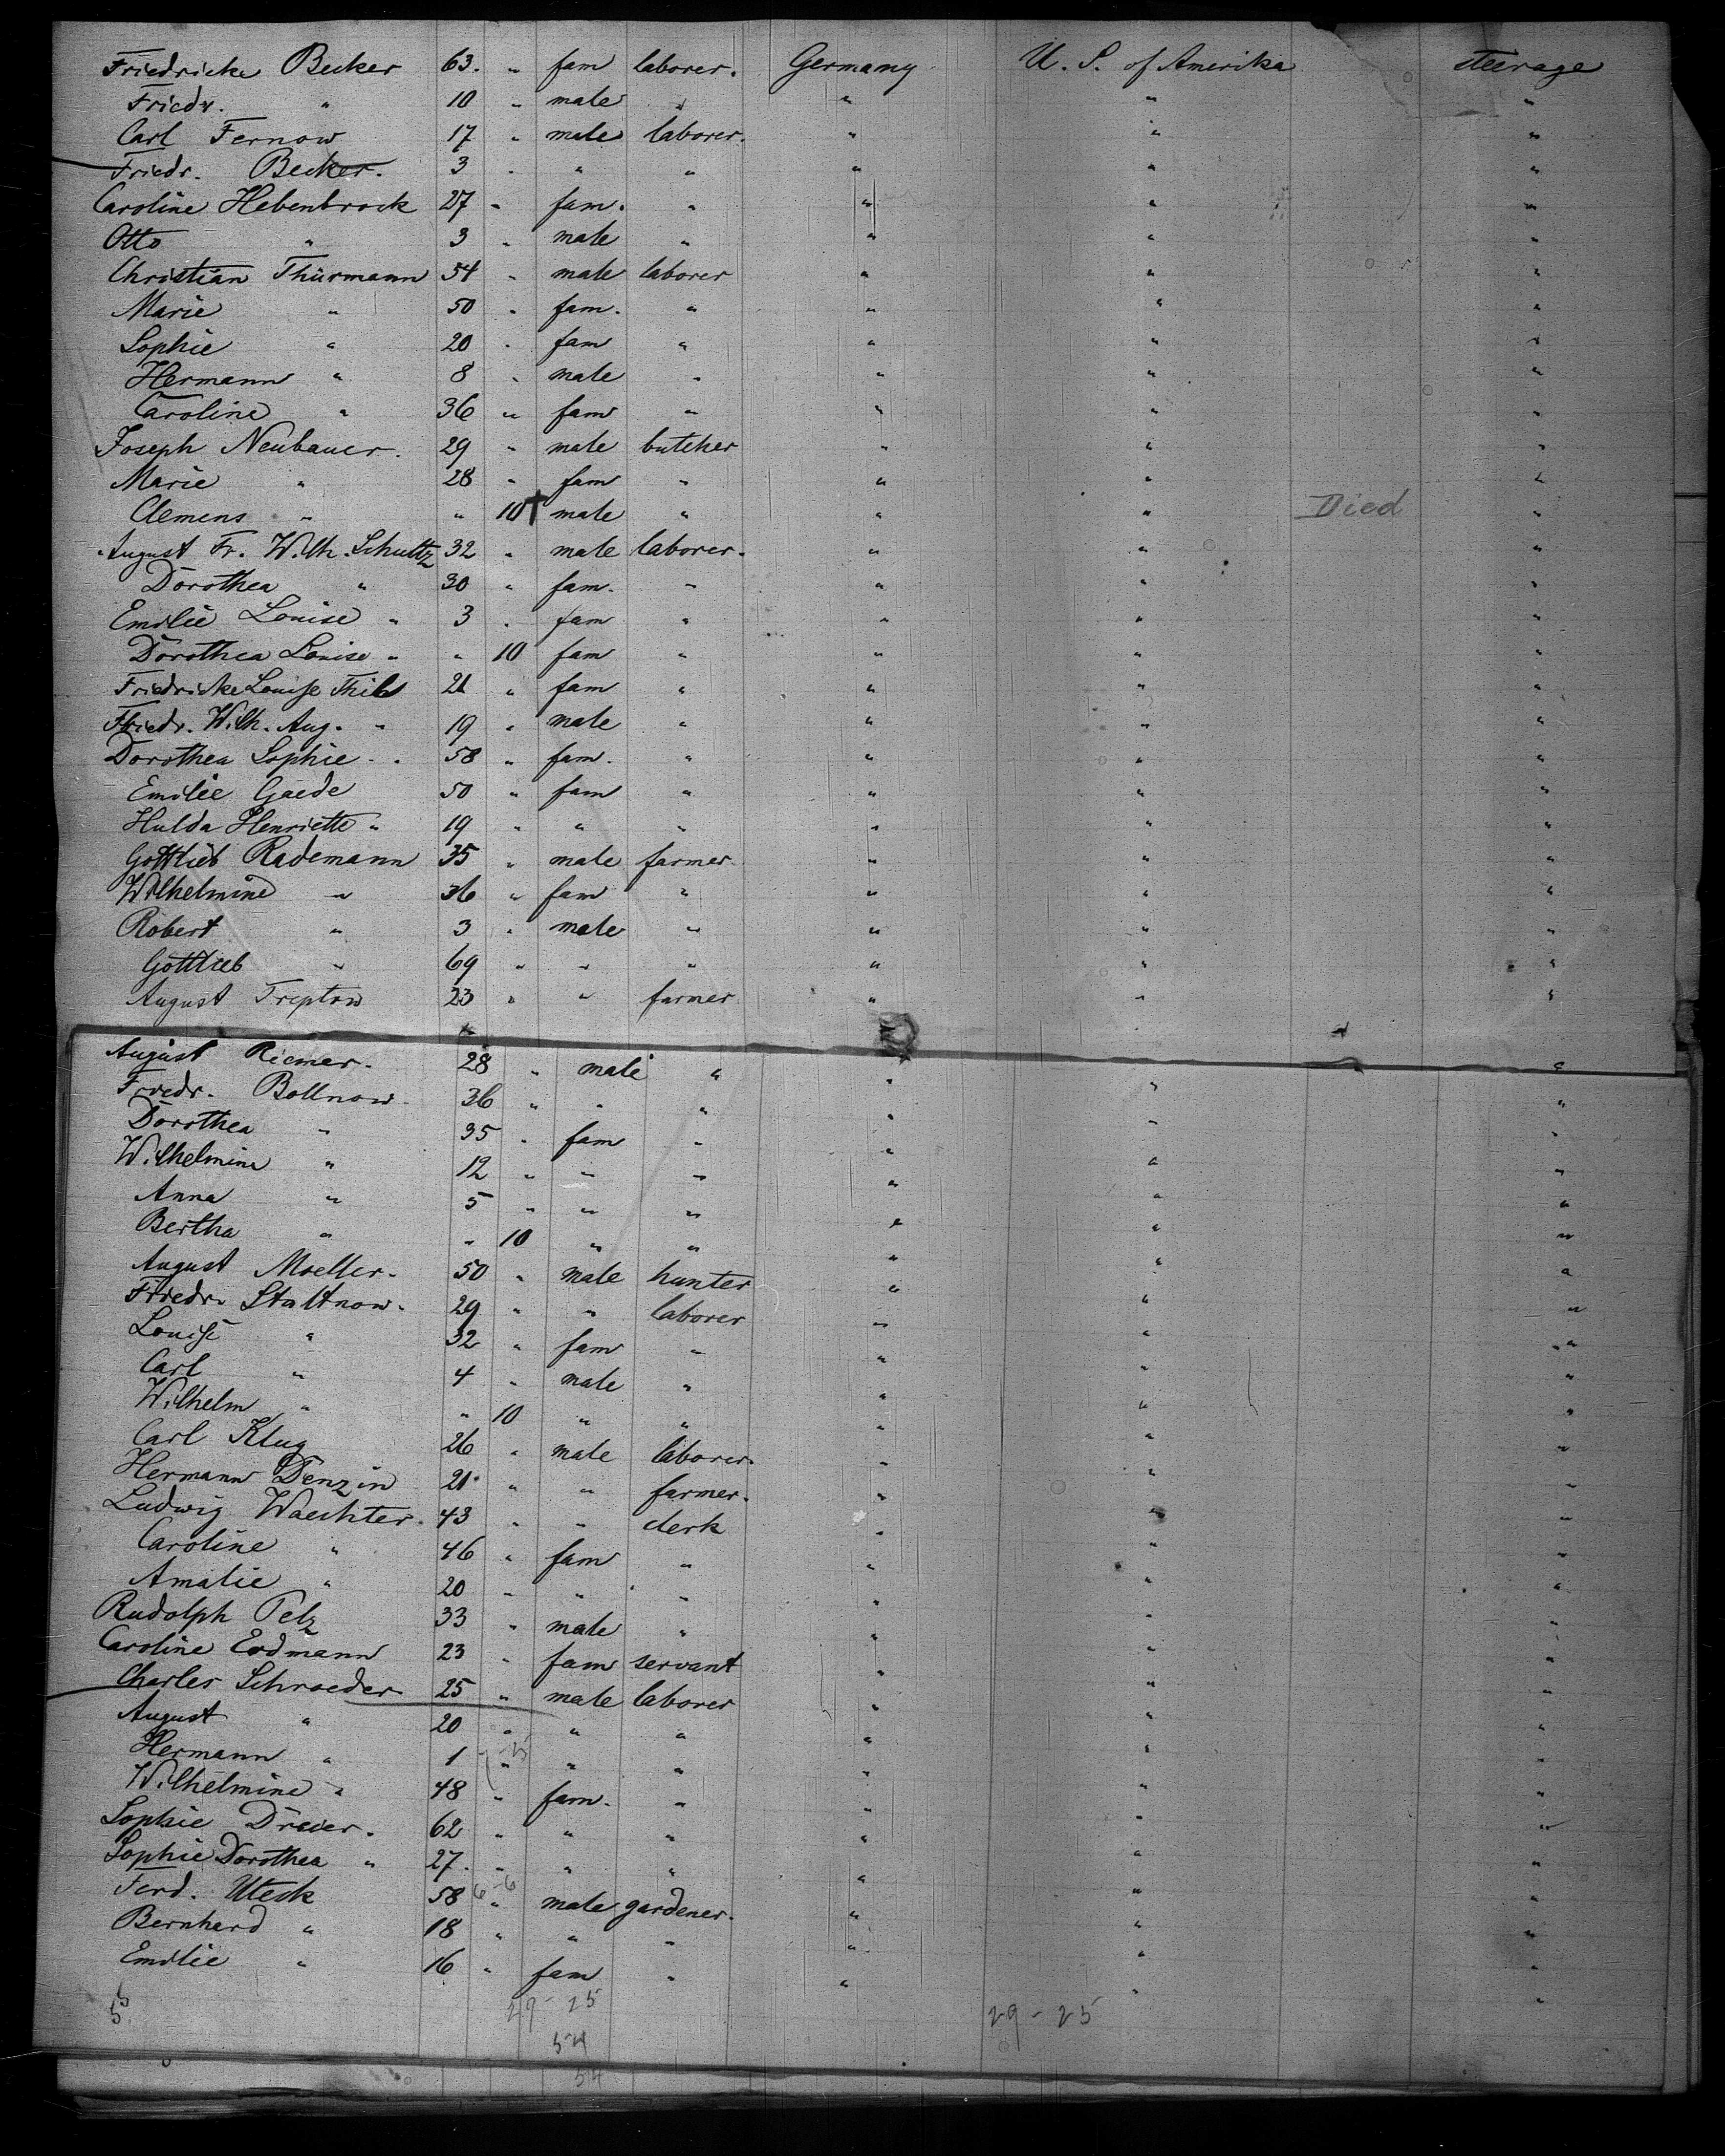 Friedricke Becker 63. " fam laborer. Germany U. S. of Amerika steerage
Friedr. " 10 " male " " " "
Carl Fernow 17 " male laborer. " " "
Friedr. Becker. 3 " " " " " "
Caroline Hebenbrock 27 " fam. " " " "
Otto " 3 " male " " " "
Christian Thürmann 54 " male laborer " " "
Marie " 50 " fam. " " " "
Sophie " 20 " fam " " " "
Hermann " 8 " male " " " "
Caroline " 36 " fam " " " "
Joseph Neubauer. 29 " male butcher " " "
Marie " 28 " fam " " " "
Clemens " " 10† male " " " Died "
August Fr. Wilh. Schultz 32 " male laborer. " " "
Dorothea " 30 " fam. " " " "
Emilie Louise " 3 " fam " " " "
Dorothea Louise " " 10 fam " " " "
Friedricke Louise 21 " fam " " " "
Friedr. Wilh. Aug. " 19 " male " " " "
Dorothea Sophie " 58 " fam. " " " "
Emilie Gaede 50 " fam " " " "
Hulda Henriette " 19 " " " " " "
Gottlieb Rademann 35 " male farmer " " "
Wilhelmine " 36 " fam " " " "
Robert " 3 " male " " " "
Gottlieb " 69 " " " " " "
August Treptow 23 " " farmer " " "
August Riemer. 28 " male " " " "
Friedr. Bollnow. 36 " " " " " "
Dorothea " 35 " fam " " " "
Wilhelmine " 12 " " " " " "
Anna " 5 " " " " " "
Bertha " " 10 " " " " "
August Moeller. 50 " male hunter " " "
Friedr. Staltnow. 29 " " laborer " " "
Louise " 32 " fam " " " "
Carl " 4 " male " " " "
Wilhelm " " 10 " " " " "
Carl Klug 26 " male laborer. " " "
Hermann Denzin 21 " " farmer. " " "
Ludwig Waechter. 43 " " clerk " " "
Caroline " 46 " fam " " " "
Amalie " 20 " " " " " "
Rudolph Pelz 33 " male " " " "
Caroline Erdmann 23 " fam servant " " "
Charles Schroeder 25 " male laborer " " "
August " 20 " " " " " "
Hermann " 1 " " " " " "
Wilhelmine " 48 " fam. " " " "
Sophie Dreier. 62 " " " " " "
Sophie Dorothea " 27. " " " " " "
Ferd. Uteck 58 6 - 6 " male gardener. " " "
Bernhard " 18 " " " " " "
Emilie " 16 " fam " " " "
55 29 - 25 29 - 25
54
54